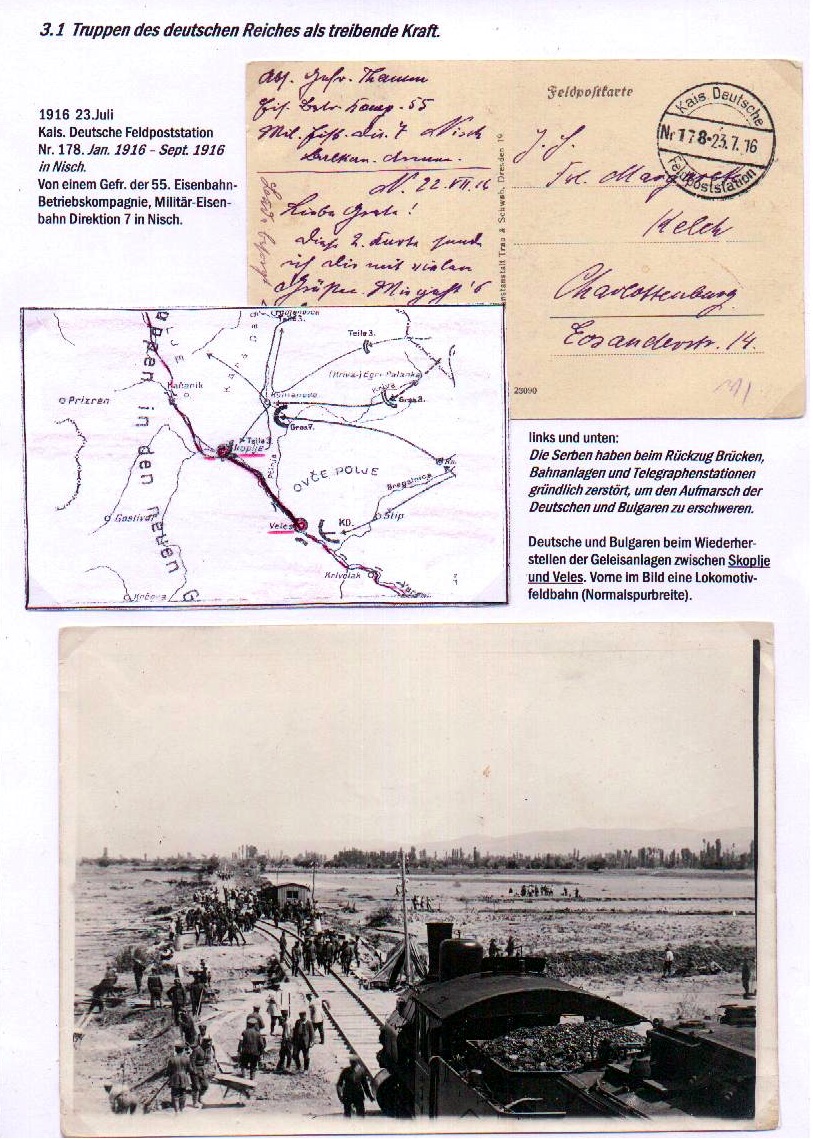 3.1 Truppen des deutschen Reiches als treibende Kraft.
1916 23.Juli
Kais. Deutsche Feldpoststation
Nr. 178. Jan. 1916 – Sept. 1916
in Nisch.
Von einem Gefr. der 55. Eisenbahn-
Betriebskompagnie, Militär-Eisen-
bahn Direktion 7 in Nisch.
Abs. Gefr. Thamm
Eis. Betr. Komp. 55
Mil. Eisb. Dir. 7 Nisch
Balkan
N. 22.VII.16
Liebe Grete!
Diese 2. Karte sende
ich Dir mit vielen
Grüßen
Feldpostkarte
Kais. Deutsche
Nr 178-23.7.16
Feldpoststation
Frl.
Kelch
Charlottenburg
Eosanderstr. 14.
Dresden 19
23090
Teile 3.
Teile 3.
Kačanik
Prizren
(Kriva-) Egri-Palanka
Kriva
Gros 8.
Gros 7.
Teile 3.
Skoplje
Pčinja
OVČE POLJE
Bregalnica
Gostivar
Veles
KD.
Štip
Krivolak
Kičevo
in den neuen G
links und unten:
Die Serben haben beim Rückzug Brücken,
Bahnanlagen und Telegraphenstationen
gründlich zerstört, um den Aufmarsch der
Deutschen und Bulgaren zu erschweren.
Deutsche und Bulgaren beim Wiederher-
stellen der Geleisanlagen zwischen Skoplje
und Veles. Vorne im Bild eine Lokomotiv-
feldbahn (Normalspurbreite).